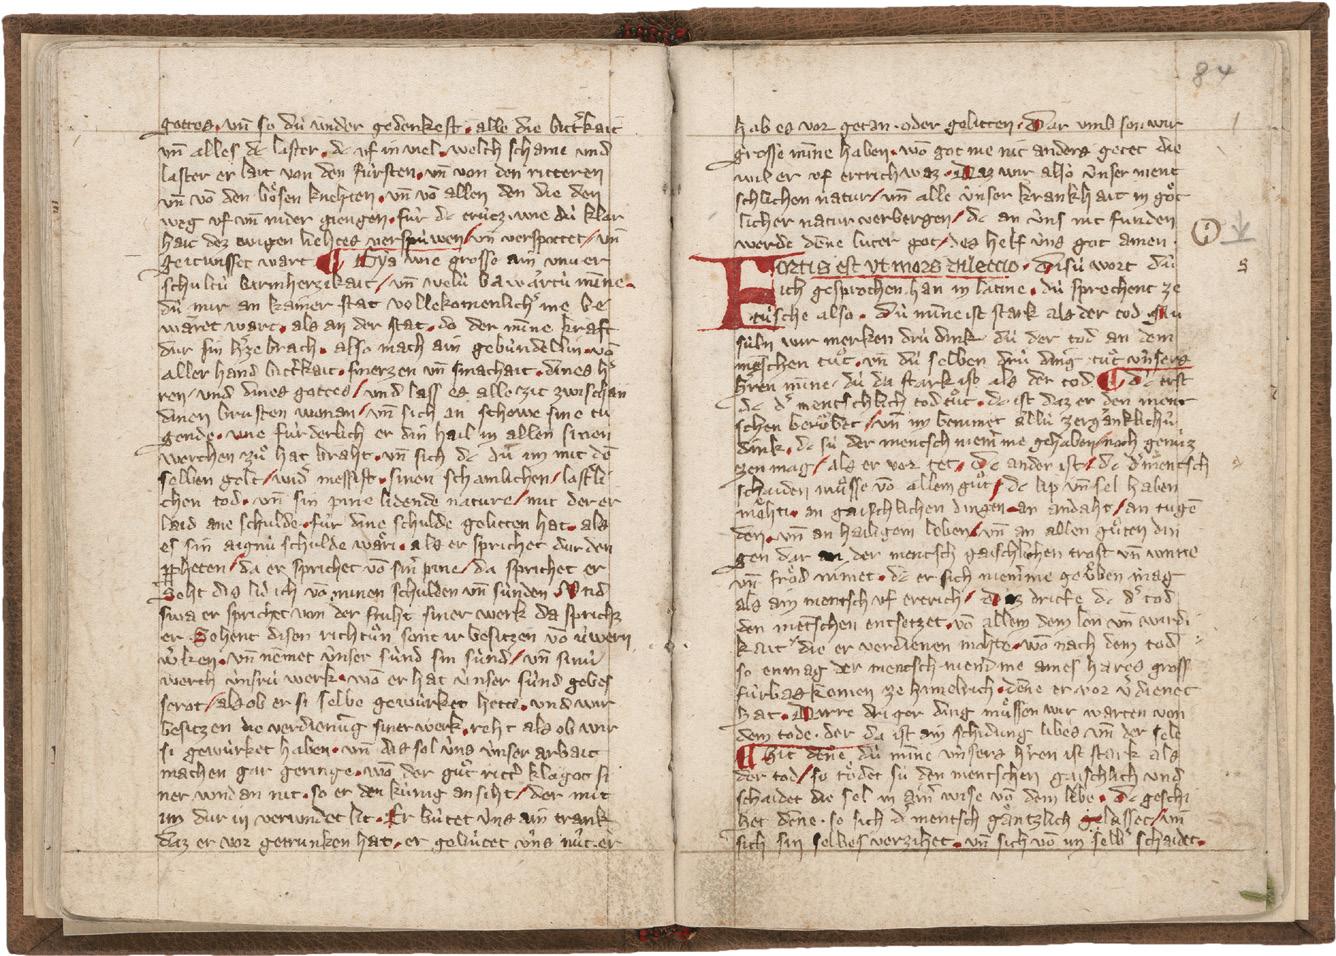 gottes. vn̄ so dú vnder gedenkest. alle die bitt̾kait
vn̄ alles dc laster. dc vf in viel. welch schame vnd
laster er lait von den fúrsten. vn̄ von den ritteren
vn̄ vō den bo̍sen knehten. vn̄ vō allen den die den
weg vf vn̄ nider giengen. fúr dc crúcz. wie dú klar
hait dez ewigen liehtes verspúwen / vn̄ verspottet / vn̄
geitwisset wart ¶ Eya wie grosse ain vnd er
schultú barmherzikait / vn̄ welú bewa̍rtú minne.
dú mir an kainer stat vollekomenlich̾ me be
wa̍ret wart. als an der stat. do der minne kraft
dur sin h̾ze brach. also mach ain gebúndellin. vō
aller hand bitt̾kait. smerzen vn̄ smachait. dines h̾
ren / vnd dines gottes / vnd lass es alle zit zwischan
dinen brústen wonan / vn̄ sich an schowe sine tu
gende. wie fúrderlich er din hail in allen sinen
werchen zů hat braht. vn̄ sich dc du̍ im mit dē
selben gelt / wid̾ messist. sinen schamlichen / lastli
chen tod. vn̄ sin pine lidende nature / mit der er
laid ane schulde. fúr dine schulde gelitten hat. als
es sin aignú schulde wa̍ri. als er sprichet dur den
ꝓpheten / da er sprichet vō sin̾ pine / da sprichet er
Seht dis lid ich vō minen schulden vn̄ súnden Vnd
swa er sprichet von der fruht siner werk da sprichz
er. Sehent disen richtůn sont ir besitzen vō úwern
w̾ken. vn̄ nēmet únser súnd sin súnd / vn̄ sinú
werch únsrú werk. wō er hat únser súnd gebes
serot / als ob er si selbe gewúrket hette. vnd wir
besitzen die verdienūg siner werk. reht als ob wir
si gewúrket haben. vn̄ dis sol úns únser arbait
machen gar geringe. wō der gůt ritt̾ klagot si
ner wndan nit. so er den kúnig ansiht / der mit
im dur in verwundet lit. Er bútet úns ain trank
daz er vor getrunken hat. er gebútet úns nút. er
84
hab es vor getan. oder gelitten. Dar vmb son wir
grosse mīne haben. wō got me nit anders getet die
wil er vf ertrich waz. Daz wir also únser ment
schlichen natur / vn̄ alle únser krankhait in go̍t
licher natur verbergen / dc an úns nit funden
werde denne luter got / des helf úns got amen.
Fortis est vt mors dileccio. Disú wort dú
ich gesprochen han in latine. dú sprechent ze
tútsche also. Dú minne ist stark als der tod. Nu
súln wir merken drú dink dú der tod an dem
menschen tůt. vn̄ dú selben drú ding tůt v́nsers
h̾ren minne. dú da stark ist als der tod ¶ dc erst
dc d̾ mentschlich tod tůt. dc ist daz er den ment
schen berobet / vn̄ im benimet allú zerganklichú
dink. dc sú der mentsch niemme gehaben / noch genies
zen mag / als er vor tet. Dc ander ist / dc d̾ mentsch
schaiden můsse vō allem gůt / dc lip vn̄ sel haben
mohti. an gaischlichen dingen. an andaht / an tugē
den. vn̄ an hailigem leben / vn̄ an allen gůten din
gen dar an der mentsch gaischlichen trost vn̄ wnne
vn̄ fro̍d nimet. dc er sich niemme geůben mag
als ain mentsch vf ertrich / daz dritte dc d̾ tod
den mentschen entsetzet. vō allem dem lon vn̄ wirdi
kait die er verdienen mohte. wō nach dem tod
so enmag der mentsch niemme aines hares gross
fúrbas komen ze himelrich. denne er vor v̾dienet
hat. Dirre drier ding mússen wir warten von
dem tode. der da ist ain schidung libes vn̄ der sele
¶ Sit dēne dú mine v́nsers h̾ren ist stark als
der tod / so to̍det sú den mentschen gaischlich vnd
schaidet die sel in ain̾ wise vō dem libe. Dc geschi
het denne. so sich d̾ mentsch gantzlich gelasset / vn̄
sich sin selbes verzihet. vn̄ sich vō im selb̾ schaidet.